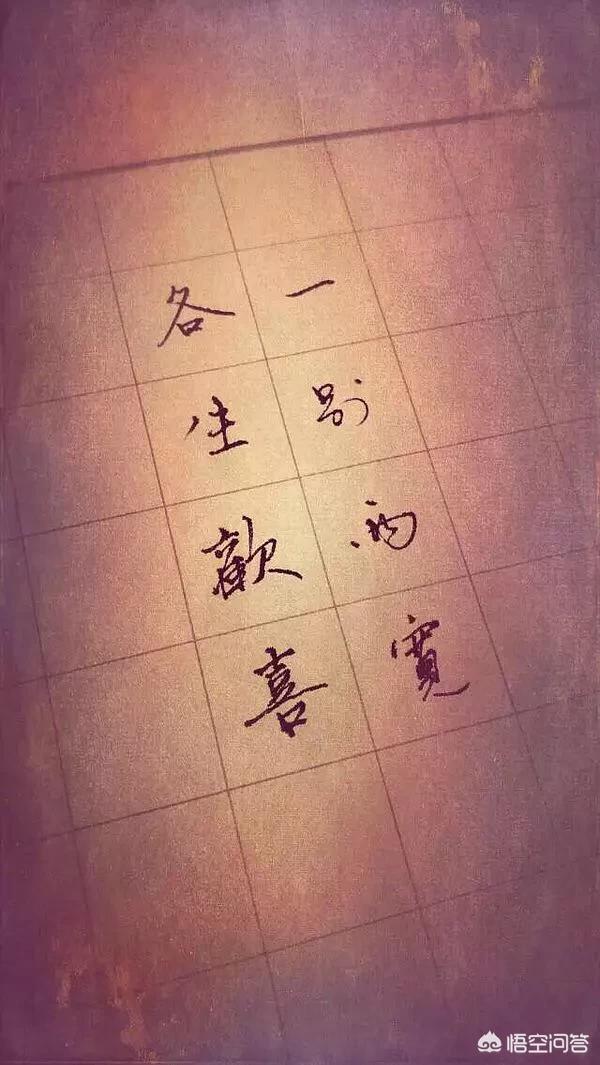 一别两寬
各生歡喜
悟空问答